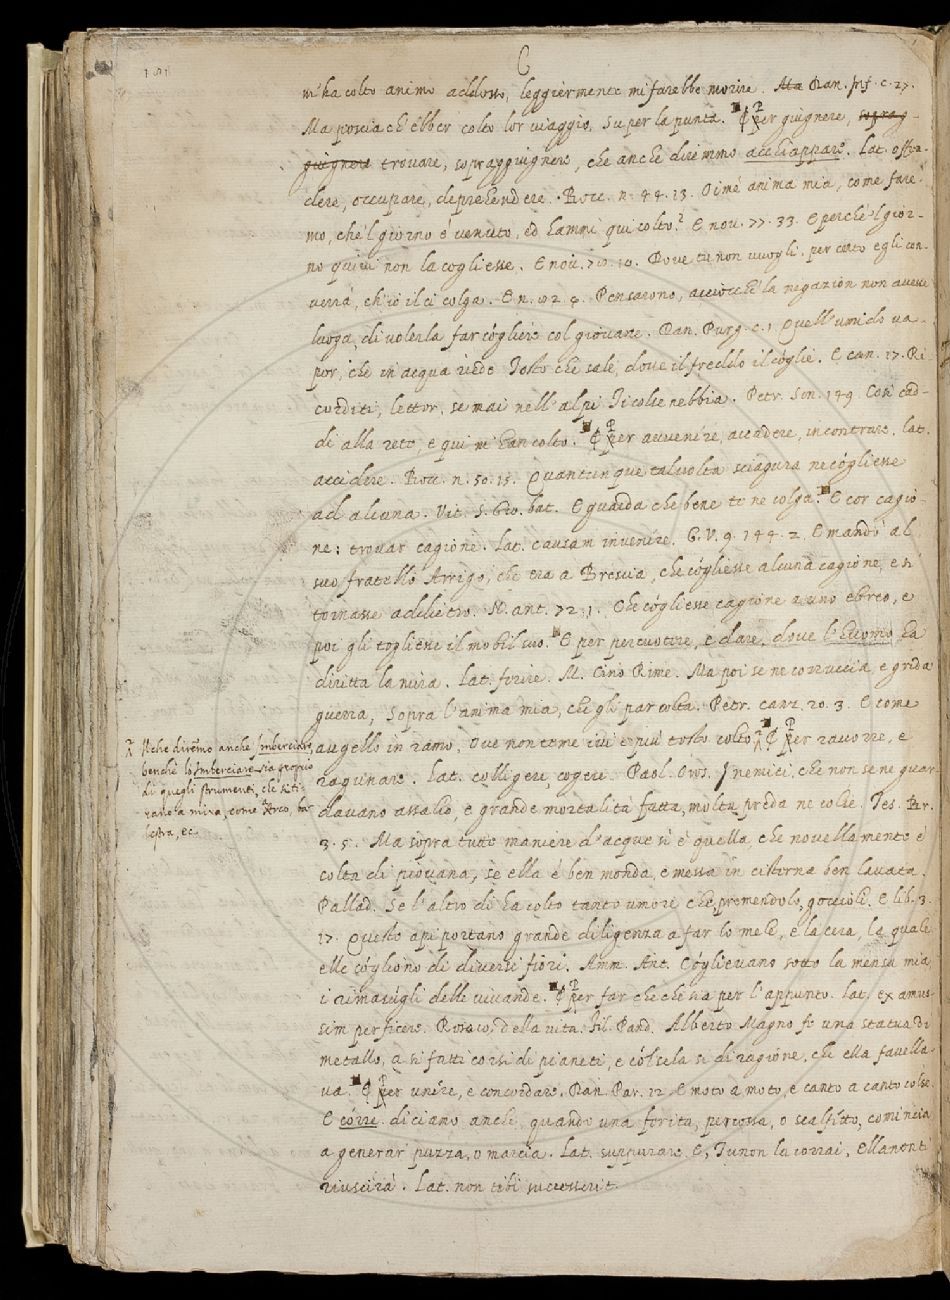 C
m'ha colto animo addosso, leggiermente mi farebbe morire. Ma Dan. Inf. c. 27.
Ma poscia ch'ebber colto lor viaggio, Su per la punta. ¶ Per giugnere, soprag-
giugnere trovare, sopraggiugnere, che anche diremmo acchiappare. Lat. offen-
dere, occupare, deprehendere. Bocc. n. 44. 13. Oimè anima mia, come fare-
mo, che 'l giorno è venuto, ed hammi qui colto? E nov. 77. 33. E perchè 'l gior-
no quivi non la cogliesse. E nov. 10. Dove tu non vuogli, per certo egli con-
verrà, ch'io il ci colga. E n. 92. 9. Pensarono, acciocchè la negazion non avesse
luogo, di volerla far cógliere col giovane. Dan. Purg. c. Quell'umido va-
por, che in acqua riede Tosto che sale, dove il freddo il coglie. E can. 17. Ri-
corditi, lettor, se mai nell'alpi Ti colse nebbia. Petr. Son. 149. Così cad-
di alla rete, e qui m'han colto. ¶ Per avvenire, accadere, incontrare. Lat.
accidere. Bocc. n. 50. 15. Quantunque talvolta sciagura ne cogliesse
ad alcuna. Vit. S. Gio. bat. E guarda che bene te ne colga. E cor cagio-
ne: trovar cagione. Lat. causam invenire. G. V. 9. 144. 2. E mandò al
suo fratello Arrigo, che era a Brescia, che cogliesse alcuna cagione, e si
tornasse addietro. N. ant. 72. 1. Che cogliesse cagione a uno ebreo, e
poi gli togliesse il mobil suo. E per percuotere, e dare, dove l'huomo ha
diritta la mira. Lat. ferire. M. Cino Rime. Ma poi se ne corruccia, e grida
guerra, Sopra l'anima mia, che gli par colta. Petr. canz. 20. 3. E come
augello in ramo, Ove non teme ivi è più tosto colto ¶ Per raccorre, e
ragunare. Lat. colligere, cogere. Paol. Oros. I nemici, che non se ne guar-
davano assalio, e grande mortalità fatta, molta preda ne colse. Tes. Br.
3. 5. Ma sopra tutte maniere d'acque si è quella, che novellamente è
colta di piovana, se ella è ben monda, e messa in cisterna ben lavata.
Pallad. Se l'altro dì ha colto tanto umore che premendolo, goccioli. E lib. 3.
17. Queste api portano grande diligenza a far lo mele, e la cera, la quale
elle cógliono di diversi fiori. Amm. Ant. Coglievano sotto la mensa mia
i rimasúgli delle vivande. ¶ Per far che che sia per l'appunto. Lat. ex amus-
sim perficere. Della vita. Fil. Pand. Alberto Magno fe una statua di
metallo, a sì fatti corsi di pianeti, e cólsela sì di ragione, che ella favella-
va. ¶ Per unire, e concordare. Dan. Par. 12. E moto a moto, e canto a canto colse.
E córre diciamo anche, quando una ferita, percossa, o scalfitto, comincia
a generar puzza, o marcia. Lat. suppurare. E, Tu non la corrai, Ella non ti
riuscirà. Lat. non tibi successerit.
Il che diremo anche Imberciare,
benchè lo Imberciare sia proprio
di quegli strumenti, che si ti-
rano a mira, come Arco, ba-
lestra, ec.